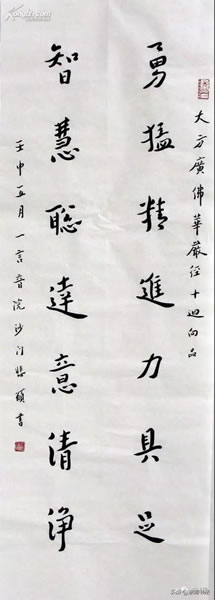 大方廣佛華嚴经十迴向品
勇猛精進力具足
智慧聪達意清淨
壬申五月一言音院沙门悲願書